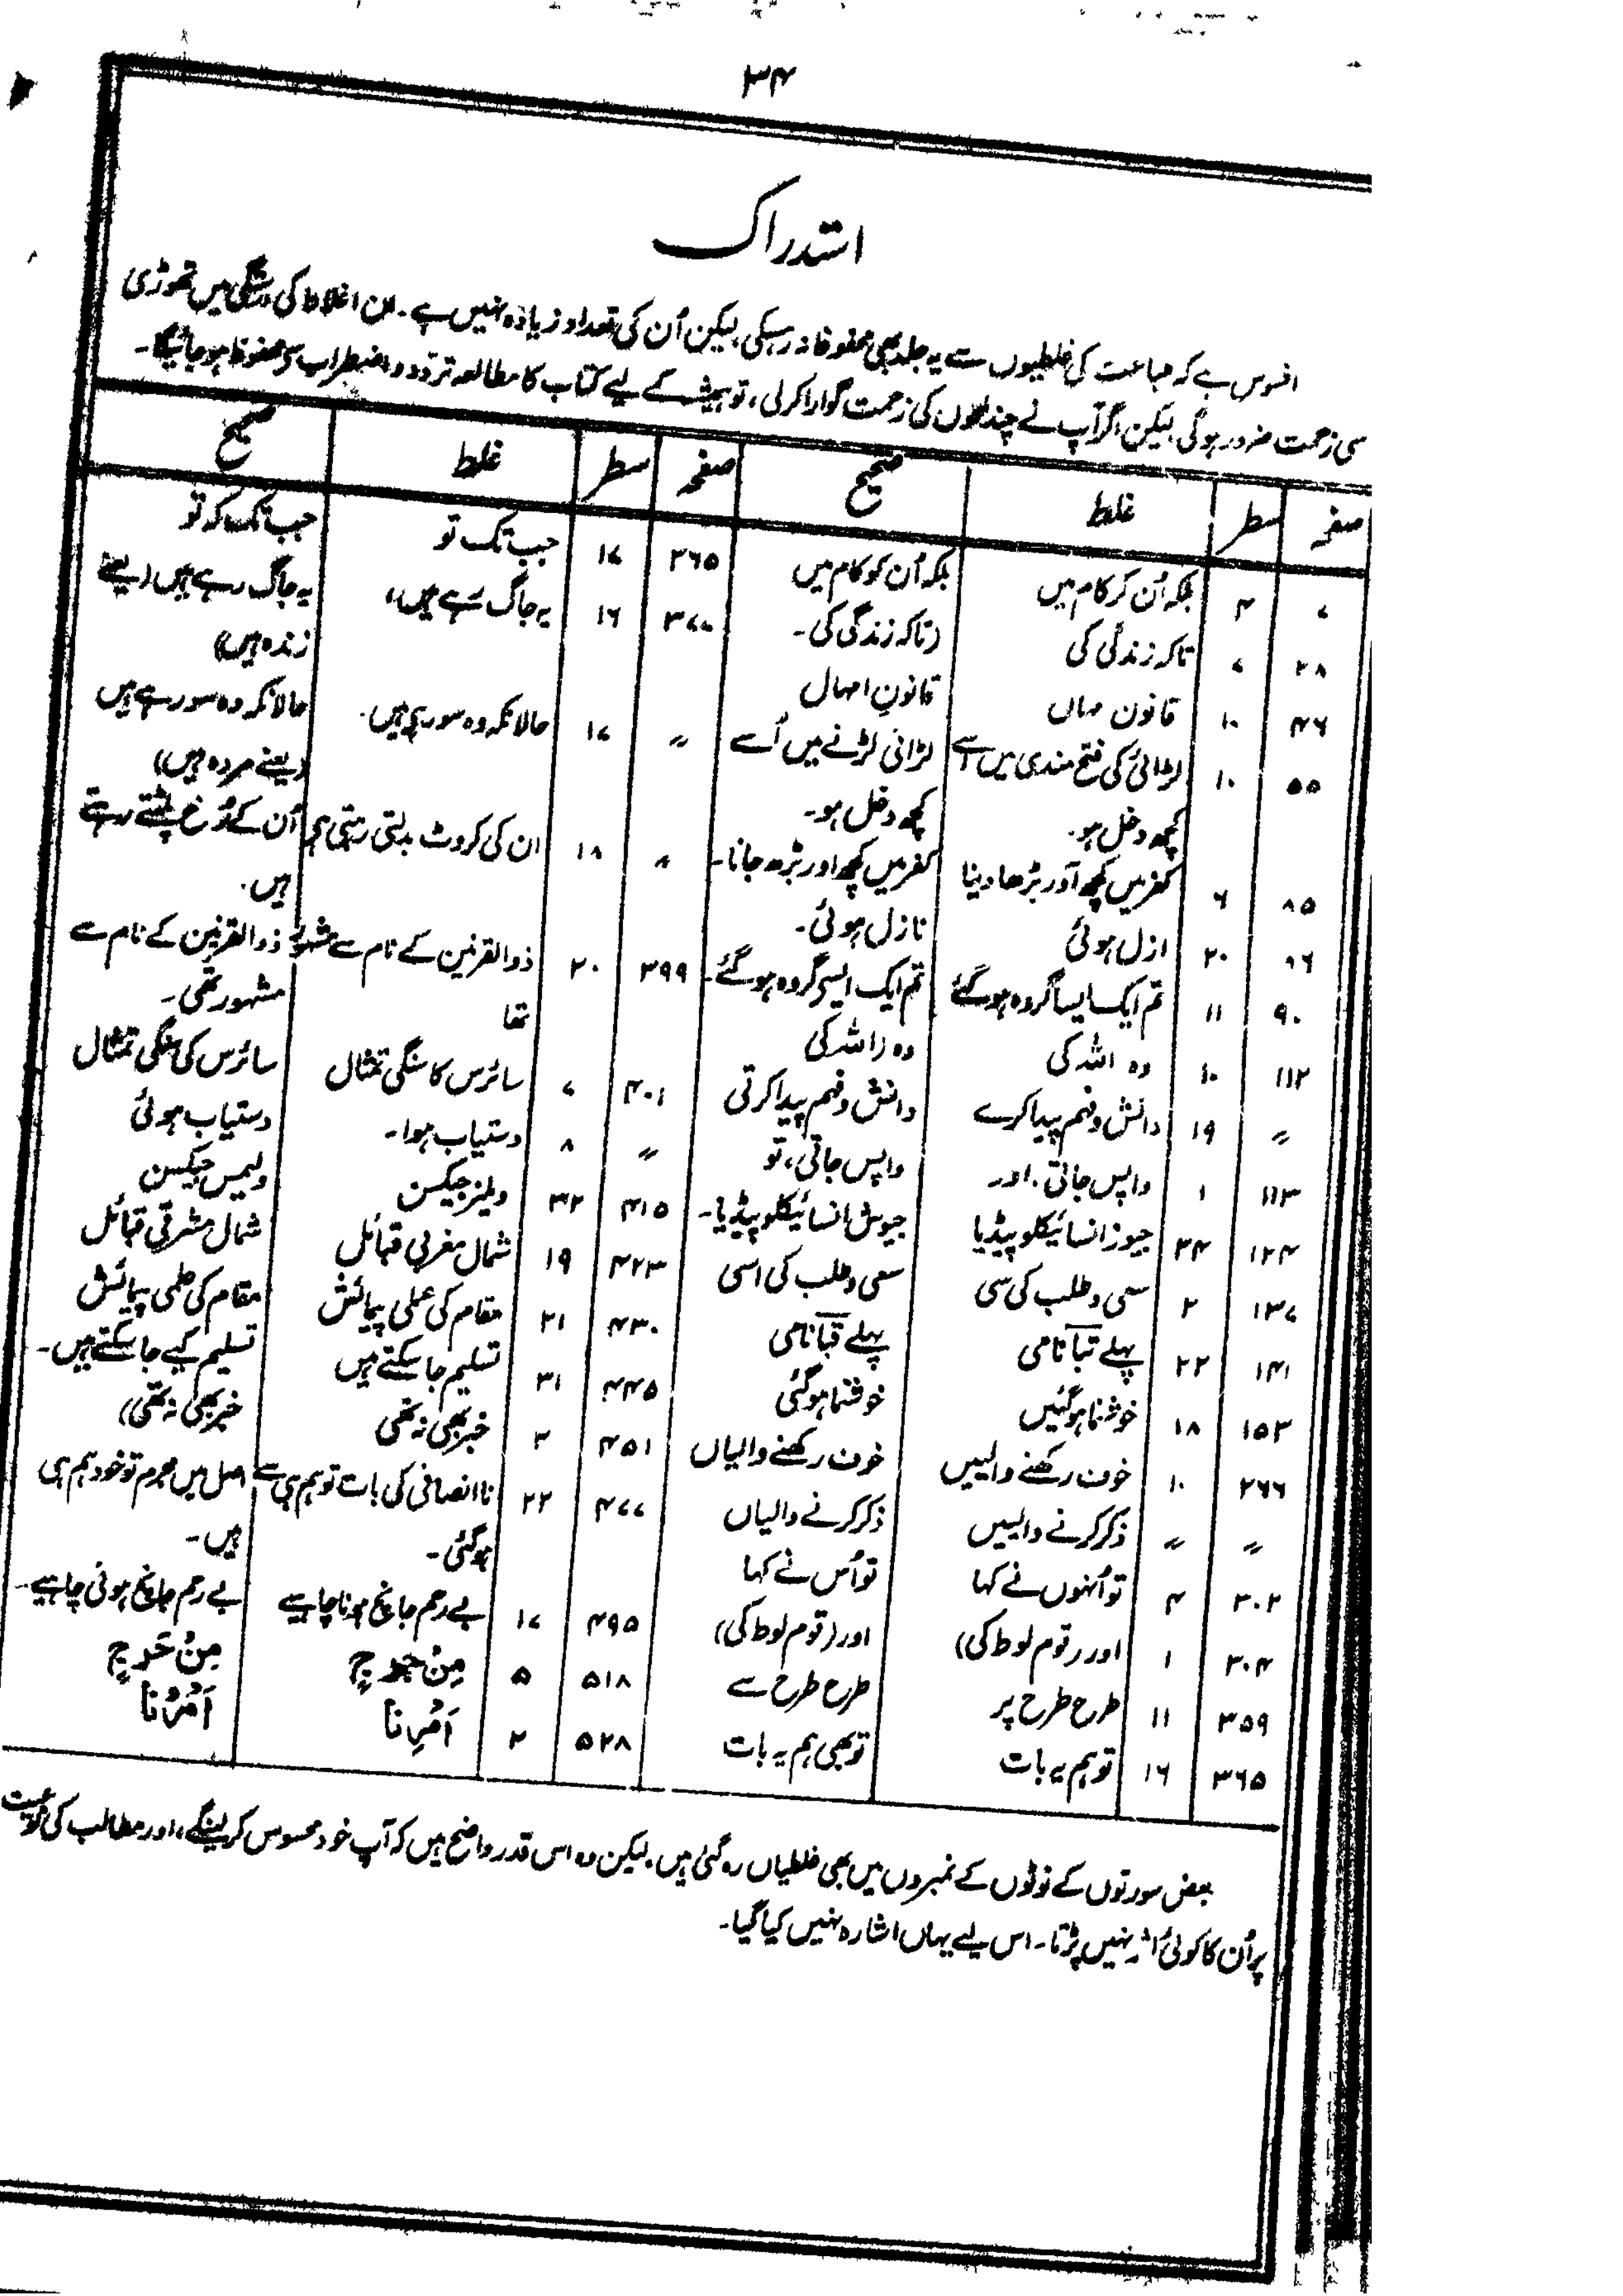 ۳۴
استدراک
افسوس ہے کہ طباعت کی غلطیوں سے یہ جلد بھی محفوظ نہ رہ سکی لیکن اُن کی تعداد زیادہ نہیں ہے۔ ان اغلاط کی درستگی میں تھوڑی
سی زحمت ضرور ہوگی لیکن اگر آپ نے چند لمحوں کی زحمت گوارا کرلی، تو ہمیشہ کے لیے کتاب کا مطالعہ تردد و اضطراب سے محفوظ ہو جائیگا۔
صفحہ سطر غلط صحیح
۷ ۴ بلکہ اُن کر کام میں بلکہ اُن کو کام میں
۲۸ ۷ تاکہ زندگی کی (تاکہ زندگی کی۔
۴۶ ۱۰ قانون مہاں قانونِ امہال
۵۵ ۱۰ لڑائی کی فتح مندی میں اُسے لڑائی لڑنے میں اُسے
کچھ دخل ہو۔ کچھ دخل ہو۔
۸۵ ۶ کفر میں کچھ اور بڑھا دینا کفر میں کچھ اور بڑھ جانا۔
۸۶ ۲۰ ازل ہوئی نازل ہوئی۔
۹۰ ۱۱ تم ایک ایسا گروہ ہوگئے تم ایک ایسی گروہ ہوگئے۔
۱۱۲ ۱۰ وہ اللہ کی وہ (اللہ کی
〃 ۱۹ دانش و فہم پیدا کرے دانش و فہم پیدا کرتی
۱۱۳ ۱ واپس جاتی۔ اور واپس جاتی، تو
۱۲۴ ۲۴ جیوز انسائیکلوپیڈیا جیوش انسائیکلوپیڈیا۔
۱۳۷ ۲ سعی و طلب کی سی سعی و طلب کی اسی
۱۴۱ ۲۲ پہلے تبا نامی پہلے قبا نامی
۱۵۳ ۱۸ خوشنما ہوگئیں خوشنما ہوگئی
۲۶۶ ۱۰ خوف رکھنے والییں خوف رکھنے والیاں
〃 〃 ذکر کرنے والییں ذکر کرنے والیاں
۳۰۲ ۴ تو اُنہوں نے کہا تو اُس نے کہا
۳۰۴ ۱ اور رقوم لوط کی) اور (قوم لوط کی)
۳۵۹ ۱۱ طرح طرح پر طرح طرح سے
۳۶۵ ۱۶ تو ہم یہ بات تو بھی ہم یہ بات
صفحہ سطر غلط صحیح
۳۶۵ ۱۷ جب تک تو جب تک کہ تو
۳۷۰ ۱۶ یہ جاگ رہے ہیں، یہ جاگ رہے ہیں (یعنے
زندہ ہیں)
〃 ۱۷ حالانکہ وہ سو رہے ہیں۔ حالانکہ وہ سو رہے ہیں
(یعنے مردہ ہیں)
〃 ۱۸ ان کی کروٹ بدلتی رہتی ہے اُن کے رُخ پلٹتے رہتے
ہیں۔
۳۹۹ ۲۰ ذوالقرنین کے نام سے مشہور ذوالقرنین کے نام سے
تھا مشہور تھی۔
۴۰۱ ۷ سائرس کا سنگی تمثال سائرس کی سنگی تمثال
〃 ۸ دستیاب ہوا۔ دستیاب ہوئی
۴۱۵ ۳۲ ویلمز جیکسن ولیمس جیکسن
۴۲۳ ۱۹ شمال مغربی قبائل شمال مشرقی قبائل
۴۳۰ ۲۱ مقام کی عملی پیمائش مقام کی علمی پیمائش
۴۴۵ ۳۱ تسلیم جا سکتے ہیں تسلیم کیے جا سکتے ہیں۔
۴۵۱ ۲ خبر بھی نہ تھی خبر بھی نہ تھی)
۴۷۷ ۲۲ ناانصافی کی بات تو ہم ہی سے اصل میں مجرم تو خود ہم ہی
ہوگئی۔ ہیں۔
۴۹۵ ۱۷ بے رحم جانچ ہونا چاہیے بے رحم جانچ ہونی چاہیے۔
۵۱۸ ۵ مِنْ حَرَجٍ
۵۲۸ ۲ اَمْرِنا اَمْرُنا
بعض سورتوں کے نوٹوں کے نمبروں میں بھی غلطیاں رہ گئی ہیں۔ لیکن وہ اس قدر واضح ہیں کہ آپ خود محسوس کر لینگے، اور مطالب کی نوعیت
پر اُن کا کوئی اثر نہیں پڑتا۔ اس لیے یہاں اشارہ نہیں کیا گیا۔